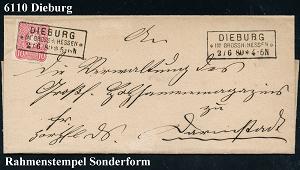 6110 Dieburg
DIEBURG
IM GROSSH. HESSEN
2/6 80 4-5N
DIEBURG
IM GROSSH. HESSEN
2/6 80 4-5N
An
die Verwaltung des
Großh. Holzsamenmagazins
zu
Darmstadt
Rahmenstempel Sonderform